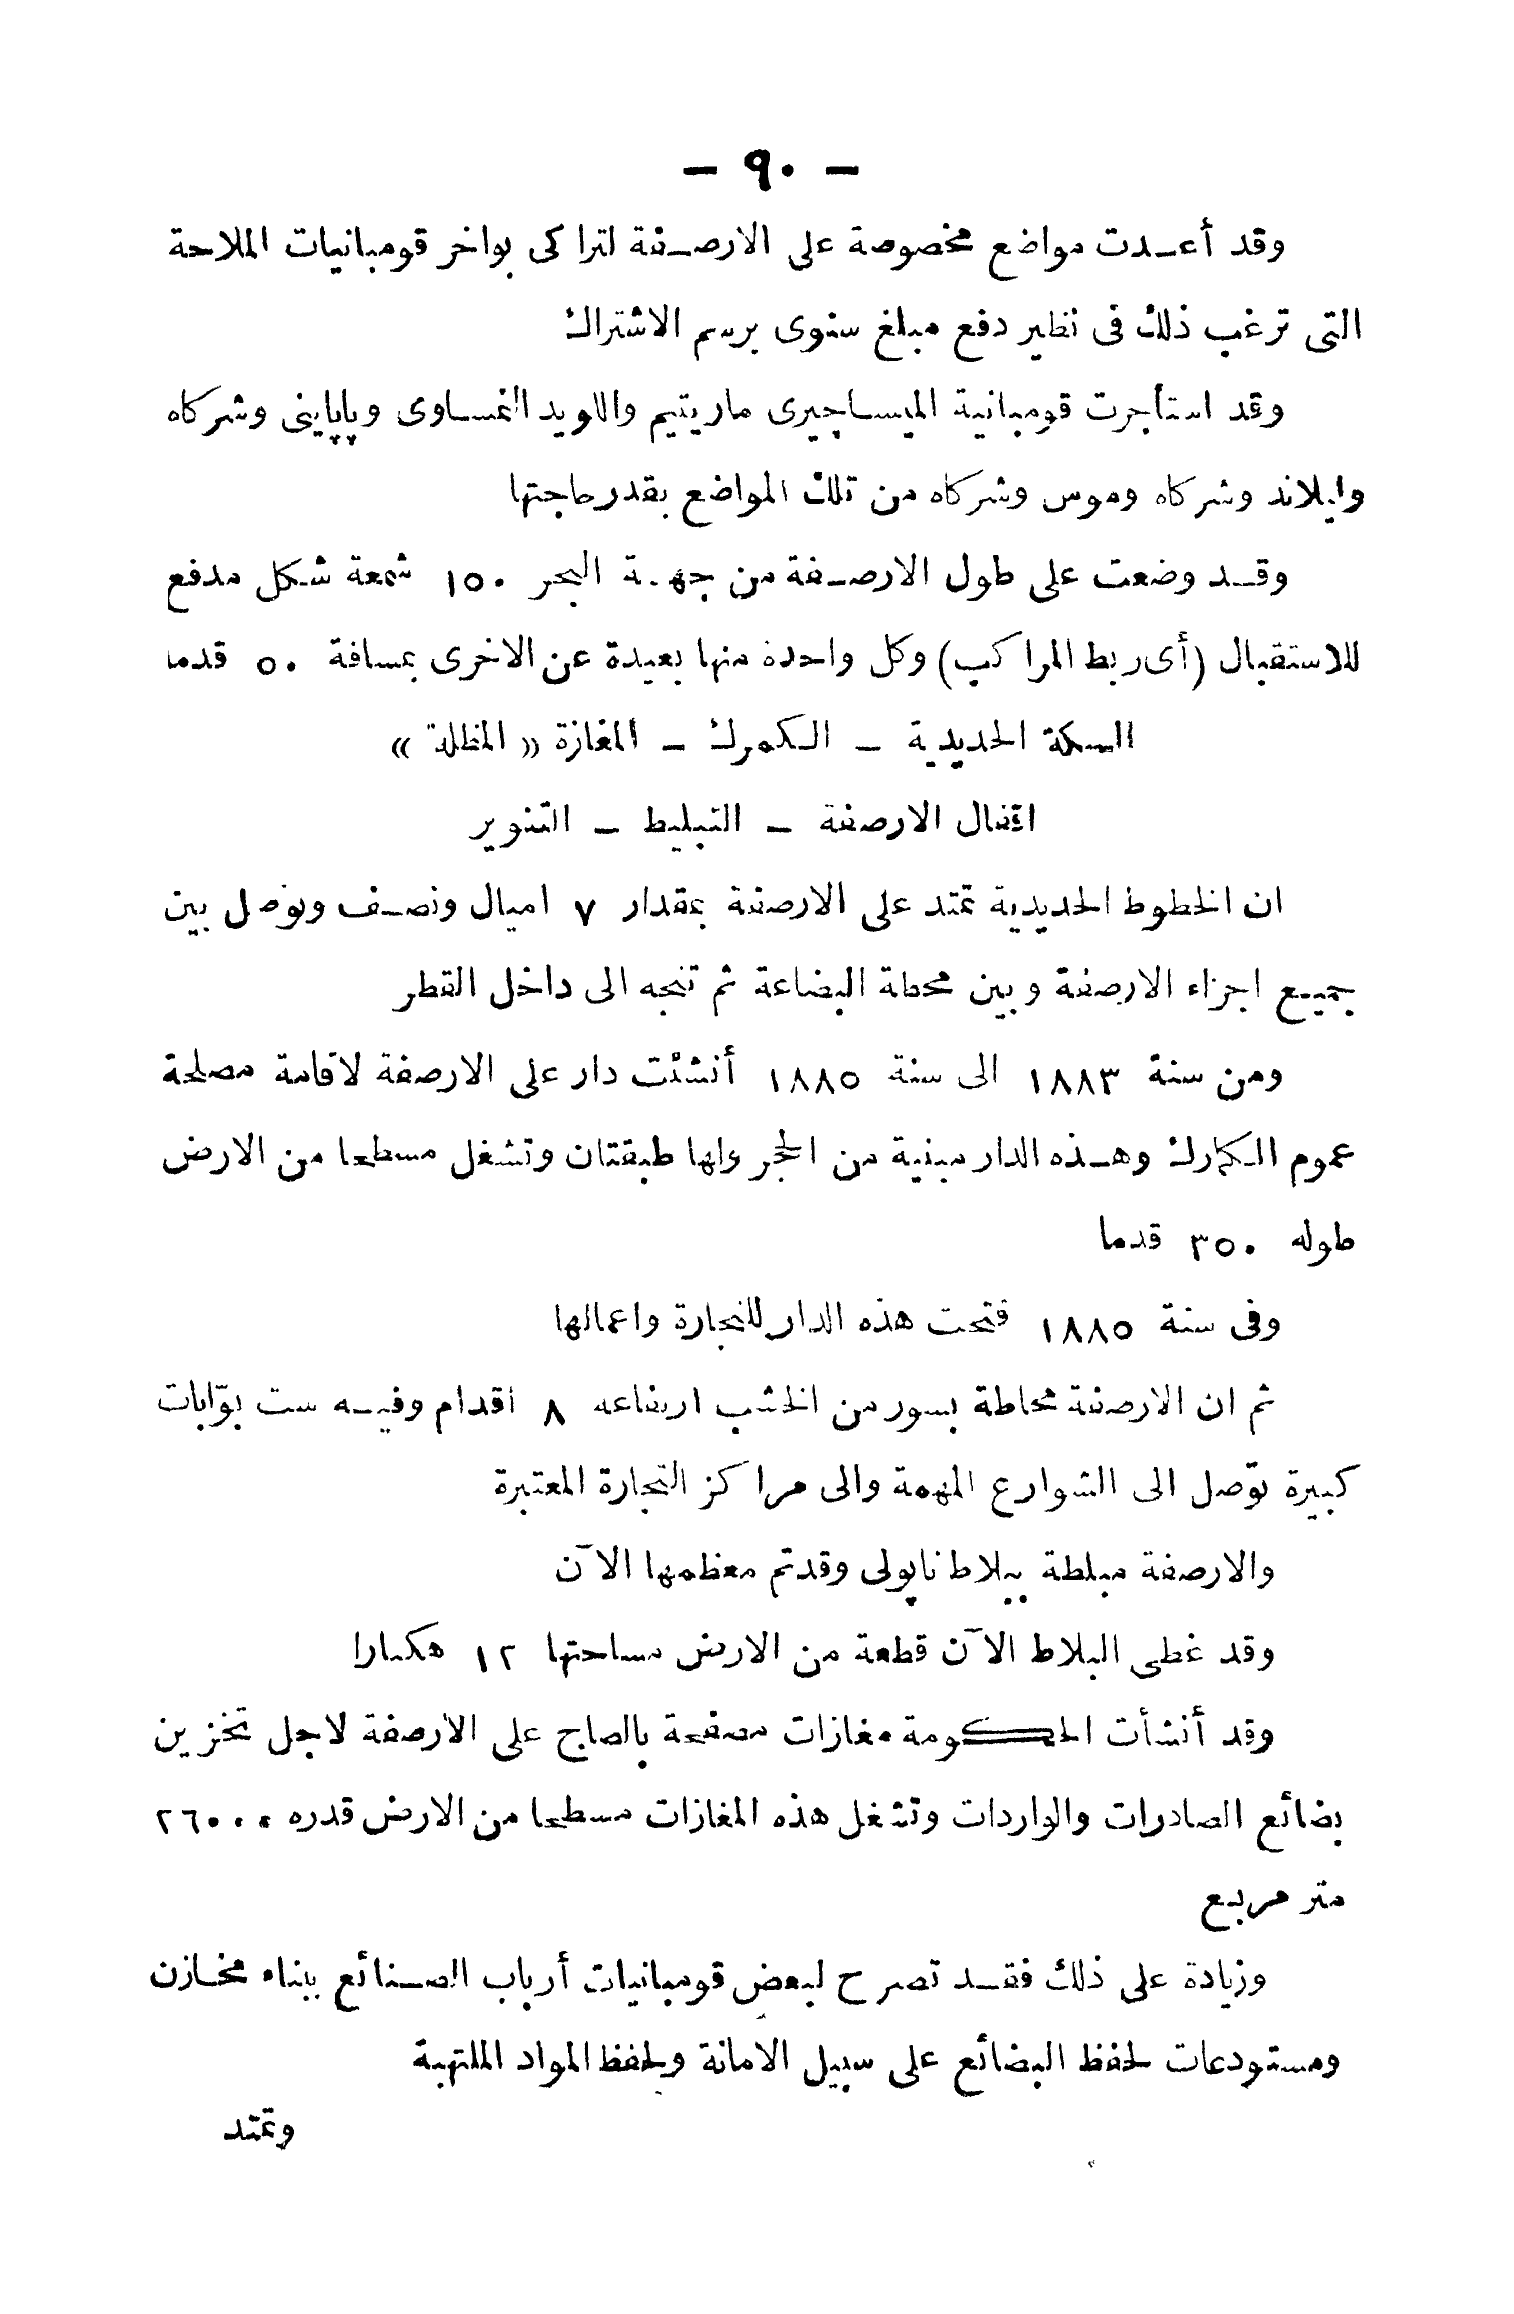 — ٩٠ —
وقد أعدت مواضع مخصوصة على الارصفة لتراكى بواخر قومبانيات الملاحة
التى ترغب ذلك فى نظير دفع مبلغ سنوى برسم الاشتراك
وقد استأجرت قومبانية الميساجيرى ماريتيم واللويد النمساوى وپاپاينى وشركاه
وايلاند وشركاه وموس وشركاه من تلك المواضع بقدر حاجتها
وقد وضعت على طول الارصفة من جهة البحر ١٥٠ شمعة شكل مدفع
للاستقبال (أى ربط المراكب) وكل واحدة منها بعيدة عن الاخرى بمسافة ٥٠ قدما
السكة الحديدية — الكمرك — المغازة « المظلة »
اقفال الارصفة — التبليط — التنوير
ان الخطوط الحديدية تمتد على الارصفة بمقدار ٧ اميال ونصف وتوصل بين
جميع اجزاء الارصفة وبين محطة البضاعة ثم تتجه الى داخل القطر
ومن سنة ١٨٨٣ الى سنة ١٨٨٥ أنشئت دار على الارصفة لاقامة مصلحة
عموم الكمارك وهذه الدار مبنية من الحجر ولها طبقتان وتشغل مسطحا من الارض
طوله ٣٥٠ قدما
وفى سنة ١٨٨٥ فتحت هذه الدار للتجارة واعمالها
ثم ان الارصفة محاطة بسور من الخشب ارتفاعه ٨ اقدام وفيه ست بوّابات
كبيرة توّصل الى الشوارع المهمة والى مراكز التجارة المعتبرة
والارصفة مبلطة ببلاط ناپولى وقد تم معظمها الآن
وقد غطى البلاط الآن قطعة من الارض مساحتها ١٢ هكتارا
وقد أنشأت الحكومة مغازات مصفحة بالصاج على الارصفة لاجل تخزين
بضائع الصادرات والواردات وتشغل هذه المغازات مسطحا من الارض قدره ٢٦٠٠٠
متر مربع
وزيادة على ذلك فقد تصرح لبعض قومبانيات أرباب الصنائع ببناء مخازن
ومستودعات لحفظ البضائع على سبيل الامانة ولحفظ المواد الملتهبة
وتمتد